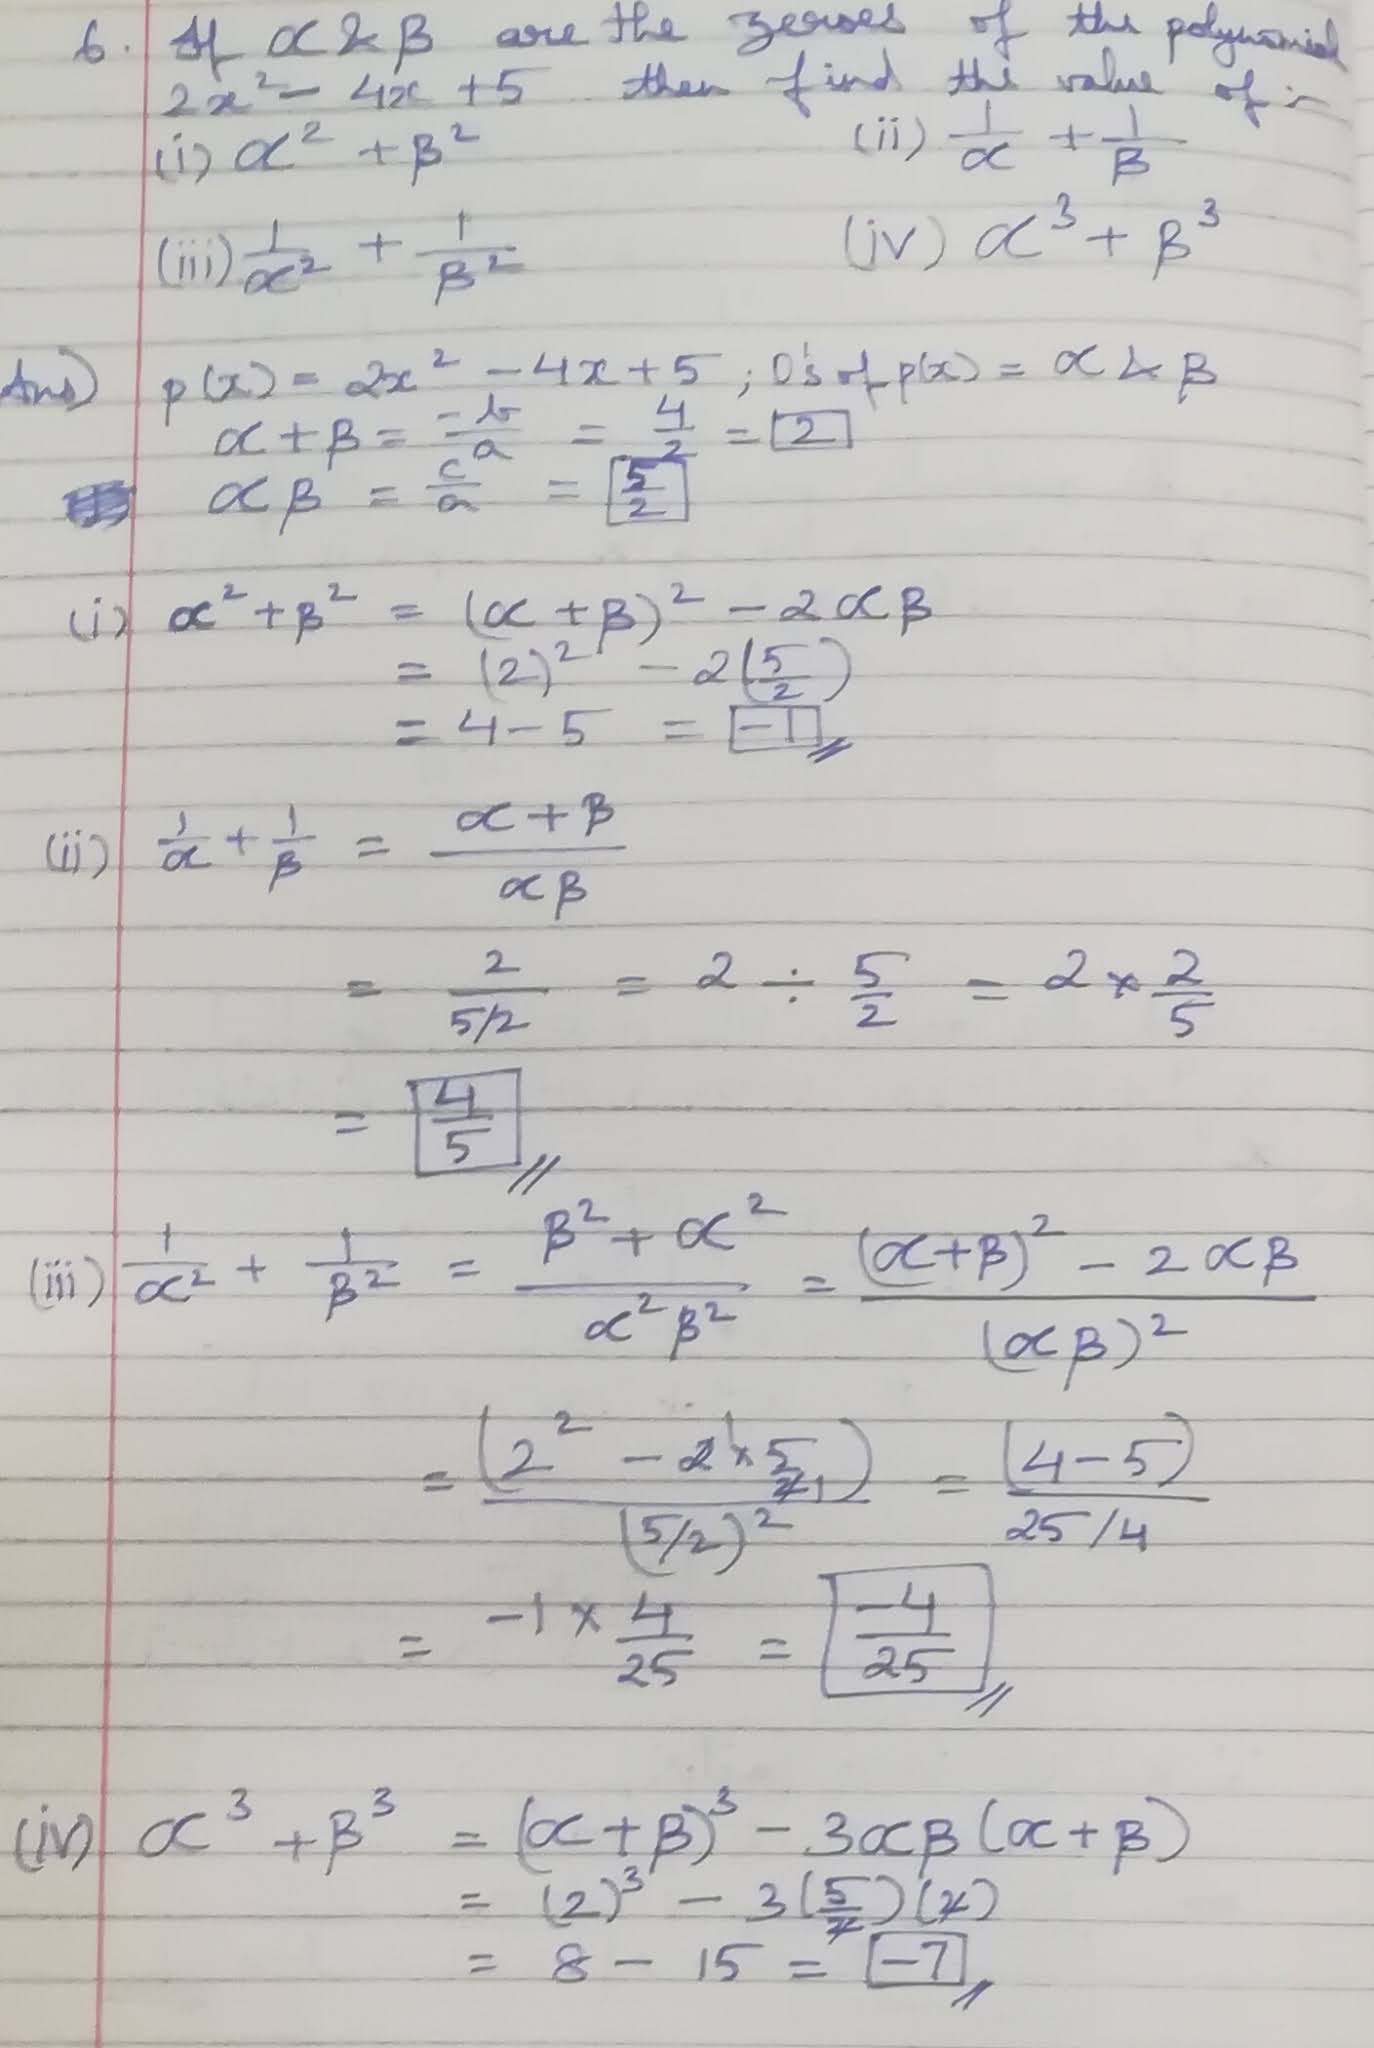 6. If α & β are the zeroes of the polynomial
2x² - 4x + 5 then find the value of :-
(i) α² + β² (ii) 1/α + 1/β
(iii) 1/α² + 1/β² (iv) α³ + β³
Ans) p(x) = 2x² - 4x + 5 ; 0's of p(x) = α & β
α + β = -b/a = 4/2 = 2
αβ = c/a = 5/2
(i) α² + β² = (α + β)² - 2αβ
= (2)² - 2(5/2)
= 4 - 5 = -1
(ii) 1/α + 1/β = α + β / αβ
= 2 / 5/2 = 2 ÷ 5/2 = 2 × 2/5
= 4/5
(iii) 1/α² + 1/β² = β² + α² / α²β² = (α + β)² - 2αβ / (αβ)²
= (2² - 2 × 5/2) / (5/2)² = (4 - 5) / 25/4
= -1 × 4/25 = -4/25
(iv) α³ + β³ = (α + β)³ - 3αβ(α + β)
= (2)³ - 3(5/2)(2)
= 8 - 15 = -7